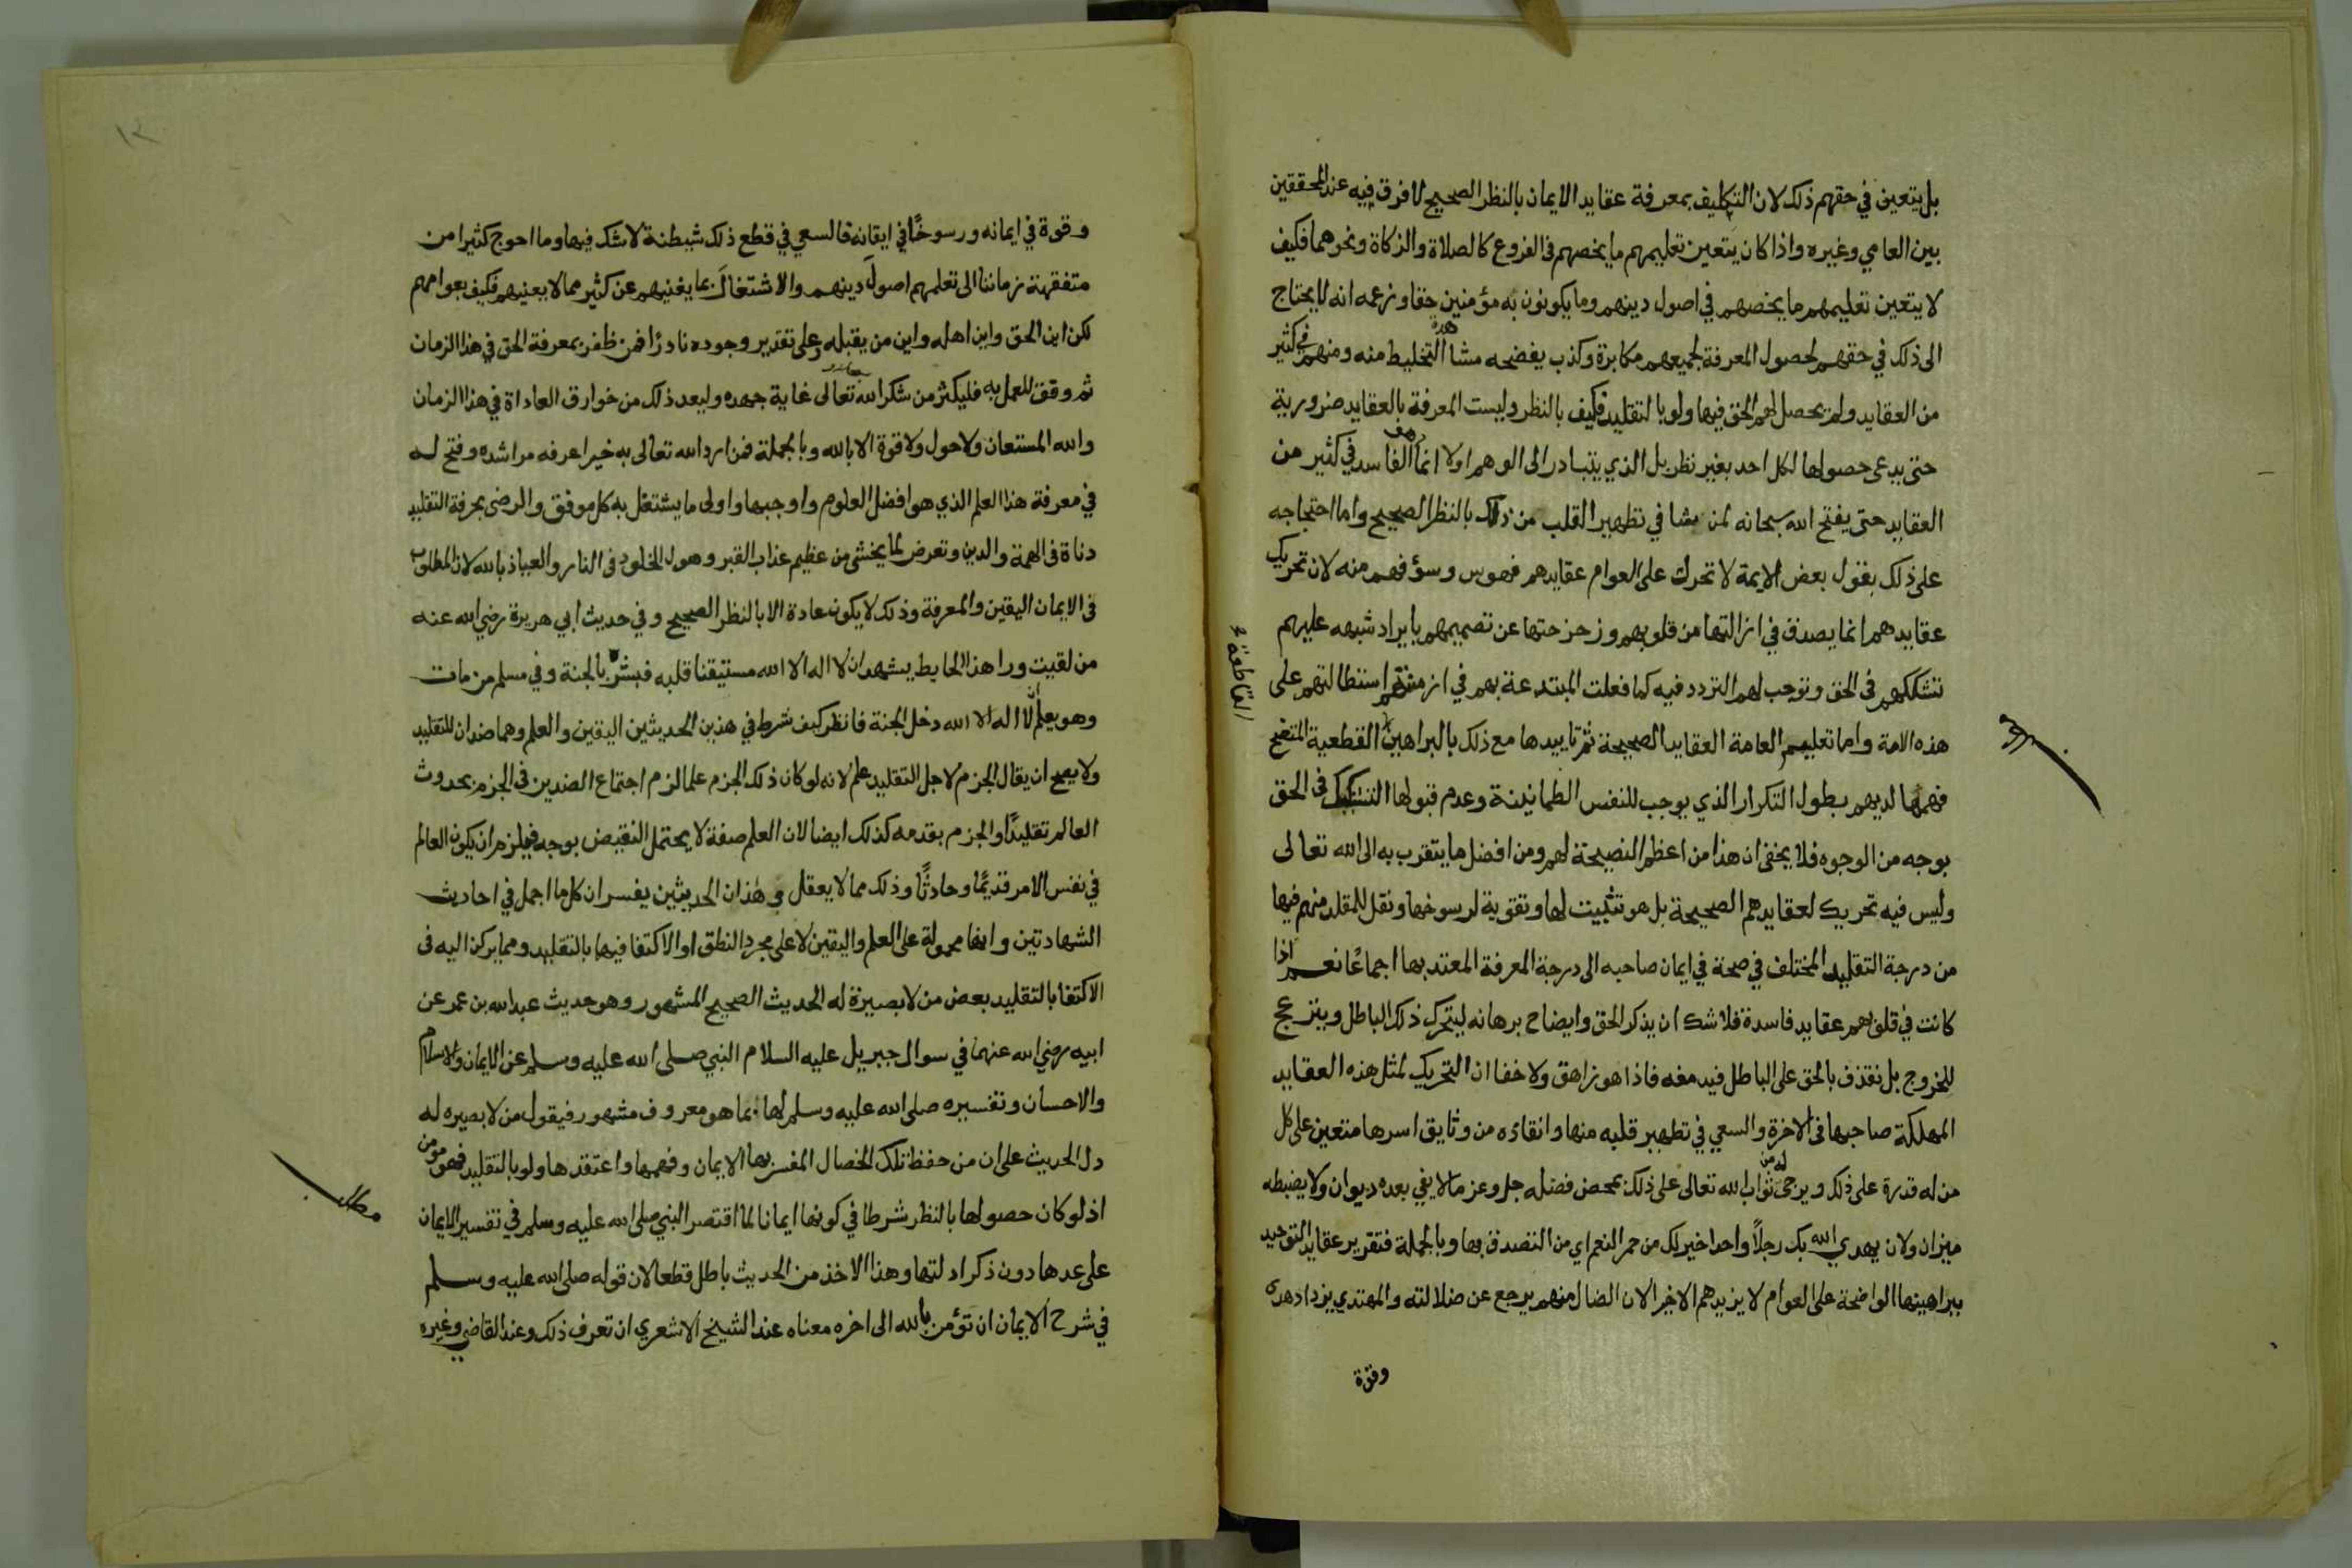 بل يتعين في حقهم ذلك لان التكليف بمعرفة عقايد الايمان بالنظر الصحيح لا فرق فيه عند المحققين
بين العامي وغيره واذا كان يتعين تعليمهم ما يخصهم في الفروع كالصلاة والزكاة ونحوهما فكيف
لا يتعين تعليمهم ما يخصهم في اصول دينهم وما يكونون به مؤمنين حقا وزعمه انه لا يحتاج
الى ذلك في حقهم لحصول المعرفة لجميعهم مكابرة وكذب يفضحه مشاهدة التخليط منه ومنهم في كثير
من العقايد ولم يحصل لهم الحق فيها ولو بالتقليد فكيف بالنظر وليست المعرفة بالعقايد ضرورية
حتى يدعى حصولها لكل احد بغير نظر بل الذي يتبادر الى الوهم اولا انما هو الفاسد في كثير من
العقايد حتى يفتح الله سبحانه لمن يشا في تطهير القلب من ذلك بالنظر الصحيح واما احتجاجه
على ذلك بقول بعض الايمة لا تحرك على العوام عقايدهم فهوس وسؤ فهم منه لان تحريك
عقايدهم انما يصدق في ازالتها من قلوبهم وزحزحتها عن تصميمهم بايراد شبهه عليهم
تشككهم في الحق وتوجب لهم التردد فيه كما فعلت المبتدعة بهم في ازمنتهم استطالتهم على
هذه الامة واما تعليمهم العامة العقايد الصحيحة ثم تاييدها مع ذلك بالبراهين القطعية المتضح
القاطعة
فهمها لديهم بطول التكرار الذي يوجب للنفس الطمانينة وعدم قبولها التشكيك في الحق
بوجه من الوجوه فلا يخفى ان هذا من اعظم النصيحة لهم ومن افضل ما يتقرب به الى الله تعالى
وليس فيه تحريك لعقايدهم الصحيحة بل هو تثبيت لها وتقوية لرسوخها ونقل للمقلد منهم فيها
من درجة التقليد المختلف في صحة في ايمان صاحبه الى درجة المعرفة المعتد بها اجماعًا نعم اذا
كانت في قلوبهم عقايد فاسدة فلا شك ان يذكر الحق وايضاح برهانه ليتحرك ذلك الباطل وينزعج
للخروج بل نقذف بالحق على الباطل فيدمغه فاذا هو زاهق ولا خفا ان التحريك لمثل هذه العقايد
المهلكة صاحبها في الاخرة والسعي في تطهير قلبه منها وانقاذه من وثايق اسرها متعين على كل
من له قدرة على ذلك ويرجى له من ثواب الله تعالى على ذلك بمحض فضله جل وعز ما لا يفي بعده ديوان ولا يضبطه
ميزان ولان يهدي الله بك رجلاً واحدا خير لك من حمر النعم اي من التصدق بها وبالجملة فتقرير عقايد التوحيد
ببراهينها الواضحة على العوام لا يزيدهم الا خيرا لان الضال منهم يرجع عن ضلالته والمهتدي يزداد هدى
وقوة
وقوة في ايمانه ورسوخًا في ايقانه فالسعي في قطع ذلك شيطنة لا شك فيها وما احوج كثيرا من
متفقهة زماننا الى تعلمهم اصول دينهم والاشتغال بما يغنيهم عن كثير مما لا يعنيهم فكيف بعوامهم
لكن اين الحق واين اهله واين من يقبله وعلى تقدير وجوده نادرًا فمن ظفر بمعرفة الحق في هذا الزمان
ثم وفق للعمل به فليكثر من شكر الله تعالى غاية جهده وليعد ذلك من خوارق العاداة في هذا الزمان
والله المستعان ولا حول ولا قوة الا بالله وبالجملة فمن ارد الله تعالى به خيرا عرفه مراشده وفتح له
في معرفة هذا العلم الذي هو افضل العلوم واوجبها واولى ما يشتغل به كل موفق والرضى بحرفة التقليد
دناة في الهمة والدين وتعرض لما يخشى من عظيم عذاب القبر وهول الخلود في النار والعياذ بالله لان المطلوب
في الايمان اليقين والمعرفة وذلك لا يكون عادة الا بالنظر الصحيح وفي حديث ابي هريرة رضي الله عنه
من لقيت ورا هذا الحايط يشهد ان لا اله الا الله مستيقنا قلبه فبشره بالجنة وفي مسلم من مات
وهو يعلم انه لا اله الا الله دخل الجنة فانظر كيف شرط في هذين الحديثين اليقين والعلم وهما ضدان للتقليد
ولا يصح ان يقال الجزم لاجل التقليد علم لانه لو كان ذلك الجزم علما لزم اجتماع الضدين في الجزم بحدوث
العالم تقليدًا والجزم بقدمه كذلك ايضا لان العلم صفة لا يحتمل النقيض بوجه فيلزم ان يكون العالم
في نفس الامر قديمًا وحادثًا وذلك مما لا يعقل وهذان الحديثين يفسران كل ما اجمل في احاديث
الشهادتين وانها محمولة على العلم واليقين لا على مجرد النطق او الاكتفا فيها بالتقليد ومما يركن اليه في
الاكتفا بالتقليد بعض من لا بصيرة له الحديث الصحيح المشهور وهو حديث عبد الله بن عمر عن
ابيه رضي الله عنهما في سوال جبريل عليه السلام النبي صلى الله عليه وسلم عن الايمان والاسلام
والاحسان وتفسيره صلى الله عليه وسلم لها بما هو معروف مشهور فيقول من لا بصيره له
دل الحديث على ان من حفظ تلك الخصال المفسر بها الايمان وفهمها واعتقدها ولو بالتقليد فهو مومن
مطلب
اذ لو كان حصولها بالنظر شرطا في كونها ايمانا لما اقتصر النبي صلى الله عليه وسلم في تفسير الايمان
على عدها دون ذكر ادلتها وهذا الاخذ من الحديث باطل قطعا لان قوله صلى الله عليه وسلم
في شرح الايمان ان تؤمن بالله الى اخره معناه عند الشيخ الاشعري ان تعرف ذلك وعند القاضي وغيره